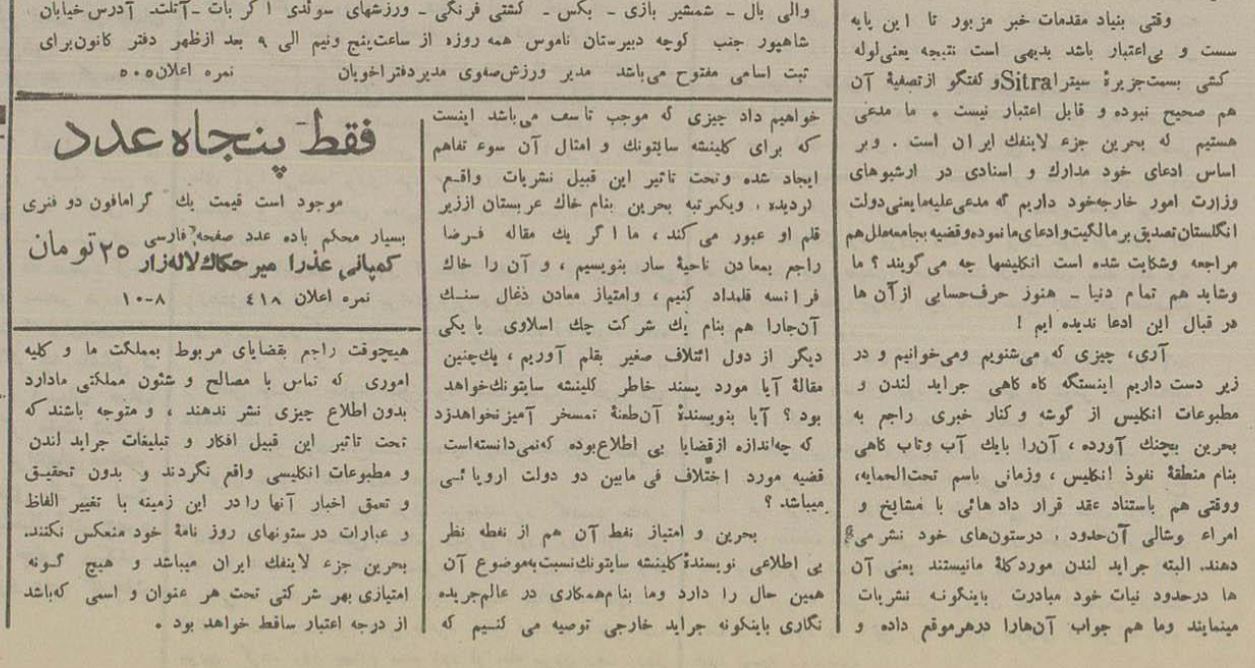 وقتی بنیاد مقدمات خبر مزبور تا این پایه
سست و بی‌اعتبار باشد بدیهی است نتیجه یعنی لوله
کشی بسمت جزیرهٔ سیترا Sitra و گفتگو از تصفیهٔ آن
هم صحیح نبوده و قابل اعتبار نیست . ما مدعی
هستیم که بحرین جزء لاینفك ایران است . و بر
اساس ادعای خود مدارك و اسنادی در ارشیوهای
وزارت امور خارجه خود داریم که مدعی علیه ما یعنی دولت
انگلستان تصدیق بر مالکیت و ادعای ما نموده و قضیه بجامعه ملل هم
مراجعه و شکایت شده است انگلیسها چه می گویند ؟ ما
و شاید هم تمام دنیا ـ هنوز حرف حسابی از آن ها
در قبال این ادعا ندیده ایم !
آری، چیزی که می‌شنویم و می‌خوانیم و در
زیر دست داریم اینستکه گاه گاهی جراید لندن و
مطبوعات انگلیس از گوشه و کنار خبری راجع به
بحرین بچنك آورده ، آن‌را بایك آب و تاب گاهی
بنام منطقهٔ نفوذ انگلیس ، و زمانی باسم تحت‌الحمایه،
و وقتی هم باستناد عقد قرار داد هائی با مشایخ و
امراء پوشالی آن‌حدود ، درستون‌های خود نشر می
دهند. البته جراید لندن مورد گلهٔ ما نیستند یعنی آن
ها درحدود نیات خود مبادرت باینگونه نشریات
مینمایند و ما هم جواب آن‌هارا در هر موقع داده و
والی بال ـ شمشیر بازی ـ بکس ـ کشتی فرنگی ـ ورزشهای سوئدی اکر بات ـ آتلت. آدرس خیابان
شاهپور جنب کوچه دبیرستان ناموس همه روزه از ساعت پنج ونیم الی ۹ بعد ازظهر دفتر کانون برای
ثبت اسامی مفتوح می‌باشد مدیر ورزش صفوی مدیر دفتر اخویان نمره اعلان ۵۰۵
خواهیم داد چیزی که موجب تاسف می‌باشد اینست
که برای کلینشه سایتونك و امثال آن سوء تفاهم
ایجاد شده و تحت تاثیر این قبیل نشریات واقع
گردیده ، و یکمرتبه بحرین بنام خاك عربستان از زیر
قلم او عبور می کند ، ما اگر یك مقاله فرضا
راجع بمعادن ناحیهٔ سار بنویسیم ، و آن را خاك
فرانسه قلمداد کنیم ، و امتیاز معادن ذغال سنك
آن‌جارا هم بنام یك شرکت چك اسلاوی یا یکی
دیگر از دول ائتلاف صغیر بقلم آوریم ، یك‌چنین
مقالهٔ آیا مورد پسند خاطر کلینشه سایتونك خواهد
بود ؟ آیا بنویسندهٔ آن طعنهٔ تمسخر آمیز نخواهد زد
که چه‌اندازه ازقضایا بی اطلاع بوده که نمی‌دانسته است
قضیه مورد اختلاف فی مابین دو دولت اروپائی
میباشد ؟
بحرین و امتیاز نفط آن هم از نقطه نظر
بی اطلاعی نویسندهٔ کلینشه سایتونك نسبت بموضوع آن
همین حال را دارد وما بنام همکاری در عالم جریده
نگاری باینگونه جراید خارجی توصیه می کنیم که
فقط پنجاه عدد
موجود است قیمت یك گرامافون دو فنری
بسیار محکم باده عدد صفحه فارسی ۲۵ تومان
کمپانی عذرا میر حکاك لاله‌زار
نمره اعلان ۴۱۸ ۸-۱۰
هیچوقت راجع بقضایای مربوط بمملکت ما و کلیه
اموری که تماس با مصالح و شئون مملکتی ما دارد
بدون اطلاع چیزی نشر ندهند ، و متوجه باشند که
تحت تاثیر این قبیل افکار و تبلیغات جراید لندن
و مطبوعات انگلیسی واقع نگردند و بدون تحقیق
و تعمق اخبار آنها را در این زمینه با تغییر الفاظ
و عبارات در ستونهای روز نامهٔ خود منعکس نکنند.
بحرین جزء لاینفك ایران میباشد و هیچ گونه
امتیازی بهر شرکتی تحت هر عنوان و اسمی که باشد
از درجه اعتبار ساقط خواهد بود .